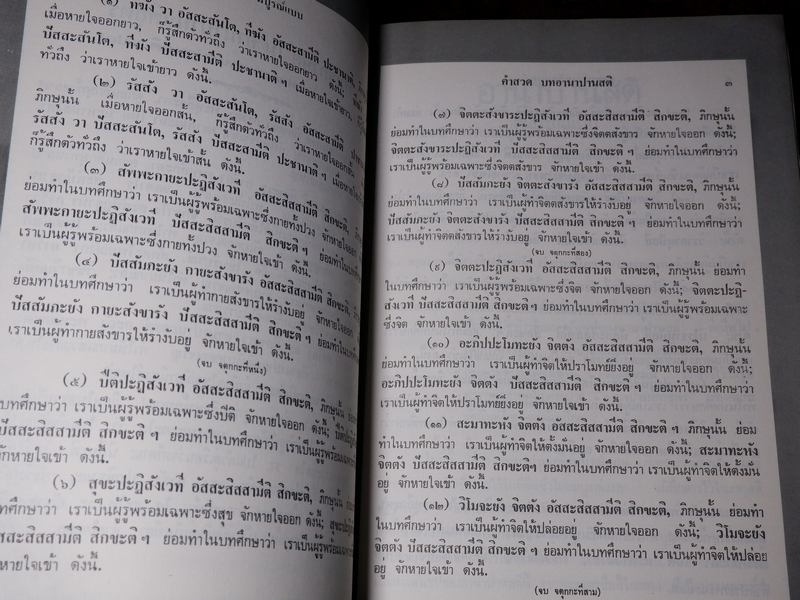 สมบูรณ์แบบ
(๑) ทีฆัง วา อัสสะสันโต, ทีฆัง อัสสะสามีติ ปะชานาติ,
เมื่อหายใจออกยาว, ก็รู้สึกตัวทั่วถึง ว่าเราหายใจออกยาว ดังนี้;
ปัสสะสันโต, ทีฆัง ปัสสะสามีติ ปะชานาติ ฯ เมื่อหายใจเข้ายาว,
ทั่วถึง ว่าเราหายใจเข้ายาว ดังนี้.
(๒) รัสสัง วา อัสสะสันโต, รัสสัง อัสสะสามีติ
ภิกษุนั้น เมื่อหายใจออกสั้น, ก็รู้สึกตัวทั่วถึง ว่าเราหายใจออก
รัสสัง วา ปัสสะสันโต, รัสสัง ปัสสะสามีติ ปะชานาติ ฯ เมื่อ
ก็รู้สึกตัวทั่วถึง ว่าเราหายใจเข้าสั้น ดังนี้.
(๓) สัพพะกายะปะฏิสังเวที อัสสะสิสสามีติ สิกขะติ,
ย่อมทำในบทศึกษาว่า เราเป็นผู้รู้พร้อมเฉพาะซึ่งกายทั้งปวง จักหายใจออก
สัพพะกายะปะฏิสังเวที ปัสสะสิสสามีติ สิกขะติ ฯ ย่อมทำในบทศึกษาว่า
เราเป็นผู้รู้พร้อมเฉพาะซึ่งกายทั้งปวง จักหายใจเข้า ดังนี้.
(๔) ปัสสัมภะยัง กายะสังขารัง อัสสะสิสสามีติ สิกขะติ,
ย่อมทำในบทศึกษาว่า เราเป็นผู้ทำกายสังขารให้รำงับอยู่ จักหายใจออก
ปัสสัมภะยัง กายะสังขารัง ปัสสะสิสสามีติ สิกขะติ ฯ ย่อมทำในบทศึกษาว่า
เราเป็นผู้ทำกายสังขารให้รำงับอยู่ จักหายใจเข้า ดังนี้.
(จบ จตุกกะที่หนึ่ง)
(๕) ปีติปะฏิสังเวที อัสสะสิสสามีติ สิกขะติ, ภิกษุนั้น ย่อม
บทศึกษาว่า เราเป็นผู้รู้พร้อมเฉพาะซึ่งปีติ จักหายใจออก ดังนี้;
ปัสสะสิสสามีติ สิกขะติ ฯ ย่อมทำในบทศึกษาว่า เราเป็นผู้รู้พร้อมเฉพาะ
จักหายใจเข้า ดังนี้.
(๖) สุขะปะฏิสังเวที อัสสะสิสสามีติ สิกขะติ, ภิกษุนั้น
บทศึกษาว่า เราเป็นผู้รู้พร้อมเฉพาะซึ่งสุข จักหายใจออก ดังนี้;
ปัสสะสิสสามีติ สิกขะติ ฯ ย่อมทำในบทศึกษาว่า เราเป็นผู้รู้พร้อมเฉพาะ
จักหายใจเข้า ดังนี้.
คำสวด บทอานาปานสติ ๓
(๗) จิตตะสังขาระปะฏิสังเวที อัสสะสิสสามีติ สิกขะติ, ภิกษุนั้น
ย่อมทำในบทศึกษาว่า เราเป็นผู้รู้พร้อมเฉพาะซึ่งจิตตสังขาร จักหายใจออก ดังนี้;
จิตตะสังขาระปะฏิสังเวที ปัสสะสิสสามีติ สิกขะติ ฯ ย่อมทำในบทศึกษาว่า
เราเป็นผู้รู้พร้อมเฉพาะซึ่งจิตตสังขาร จักหายใจเข้า ดังนี้.
(๘) ปัสสัมภะยัง จิตตะสังขารัง อัสสะสิสสามีติ สิกขะติ, ภิกษุนั้น
ย่อมทำในบทศึกษาว่า เราเป็นผู้ทำจิตตสังขารให้รำงับอยู่ จักหายใจออก ดังนี้;
ปัสสัมภะยัง จิตตะสังขารัง ปัสสะสิสสามีติ สิกขะติ ฯ ย่อมทำในบทศึกษาว่า
เราเป็นผู้ทำจิตตสังขารให้รำงับอยู่ จักหายใจเข้า ดังนี้.
(จบ จตุกกะที่สอง)
(๙) จิตตะปะฏิสังเวที อัสสะสิสสามีติ สิกขะติ, ภิกษุนั้น ย่อมทำ
ในบทศึกษาว่า เราเป็นผู้รู้พร้อมเฉพาะซึ่งจิต จักหายใจออก ดังนี้; จิตตะปะฏิ-
สังเวที ปัสสะสิสสามีติ สิกขะติ ฯ ย่อมทำในบทศึกษาว่า เราเป็นผู้รู้พร้อมเฉพาะ
ซึ่งจิต จักหายใจเข้า ดังนี้.
(๑๐) อะภิปปะโมทะยัง จิตตัง อัสสะสิสสามีติ สิกขะติ, ภิกษุนั้น
ย่อมทำในบทศึกษาว่า เราเป็นผู้ทำจิตให้ปราโมทย์ยิ่งอยู่ จักหายใจออก ดังนี้;
อะภิปปะโมทะยัง จิตตัง ปัสสะสิสสามีติ สิกขะติ ฯ ย่อมทำในบทศึกษาว่า
เราเป็นผู้ทำจิตให้ปราโมทย์ยิ่งอยู่ จักหายใจเข้า ดังนี้.
(๑๑) สะมาทะหัง จิตตัง อัสสะสิสสามีติ สิกขะติ, ภิกษุนั้น ย่อม
ทำในบทศึกษาว่า เราเป็นผู้ทำจิตให้ตั้งมั่นอยู่ จักหายใจออก ดังนี้; สะมาทะหัง
จิตตัง ปัสสะสิสสามีติ สิกขะติฯ ย่อมทำในบทศึกษาว่า เราเป็นผู้ทำจิตให้ตั้งมั่น
อยู่ จักหายใจเข้า ดังนี้.
(๑๒) วิโมจะยัง จิตตัง อัสสะสิสสามีติ สิกขะติ, ภิกษุนั้น ย่อมทำ
ในบทศึกษาว่า เราเป็นผู้ทำจิตให้ปล่อยอยู่ จักหายใจออก ดังนี้; วิโมจะยัง
จิตตัง ปัสสะสิสสามีติ สิกขะติ ฯ ย่อมทำในบทศึกษาว่า เราเป็นผู้ทำจิตให้ปล่อย
อยู่ จักหายใจเข้า ดังนี้.
(จบ จตุกกะที่สาม)